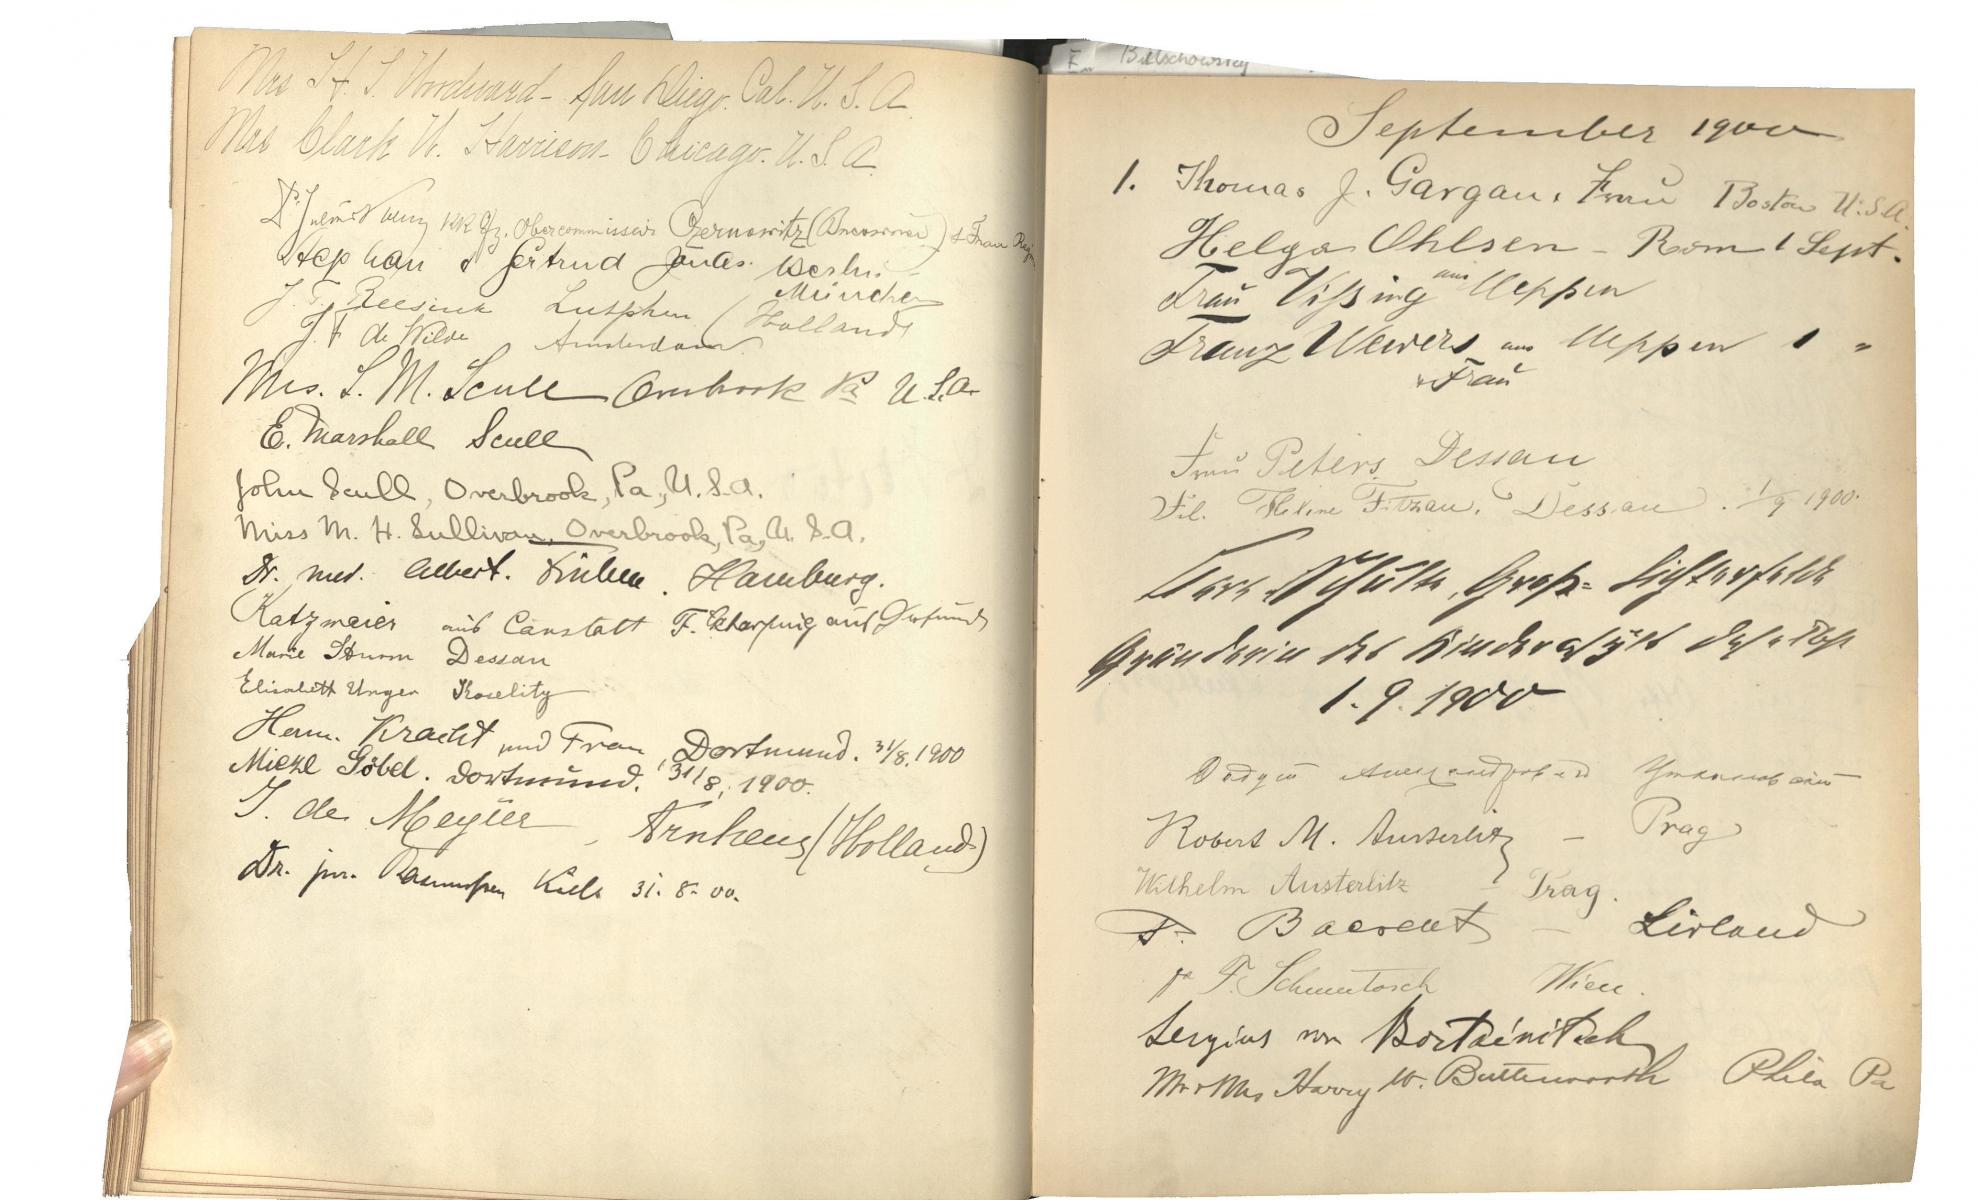 Mrs H. S. Woodward - San Diego. Cal. U. S. A
Mrs Clark W. Harrison - Chicago. U. S. A
Dr. KK Obercommissär Czernowitz (Bucowina) & Frau
Stephan & Gertrud Jonas. Berlin
München
J. F. Reesink Zutphen (Holland)
J. F. de Wilde Amsterdam
Mrs. S. M. Scull Overbrook Pa U.S.A.
E. Marshall Scull
John Scull, Overbrook, Pa., U.S.A.
Miss M. H. Sullivan, Overbrook, Pa, U.S.A.
Dr. med. Albert. Hamburg.
Katzmeier aus Canstatt F. aus
Marie Sturm Dessau
Elisabeth Unger Koselitz
Herm. Kracht und Frau, Dortmund. 31/8. 1900
Miezl Göbel. Dortmund. 31/8. 1900.
J. de Meyier, Arnhem (Holland)
Dr. jur. Rasmussen Kiel. 31. 8. 00.
Bielschowsky
September 1900
1. Thomas J. Gargan, Frau Boston U.S.A.
Helga Ohlsen - Rom 1 Sept.
Frau Vißing aus Meppen
Franz Wewers aus Meppen 1 "
& Frau
Frau Peters, Dessau
Frl. Helene Fitzau, Dessau. 1/9 1900.
Schulte, Groß-Lichterfelde
Gründerin des Kinderasyls
1. 9. 1900
Robert M. Austerlitz - Prag
Wilhelm Austerlitz - Prag.
Dr. Baerent - Livland
Dr F. Wien.
Sergius von
Mr & Mrs Harry W. Butterworth Phila Pa